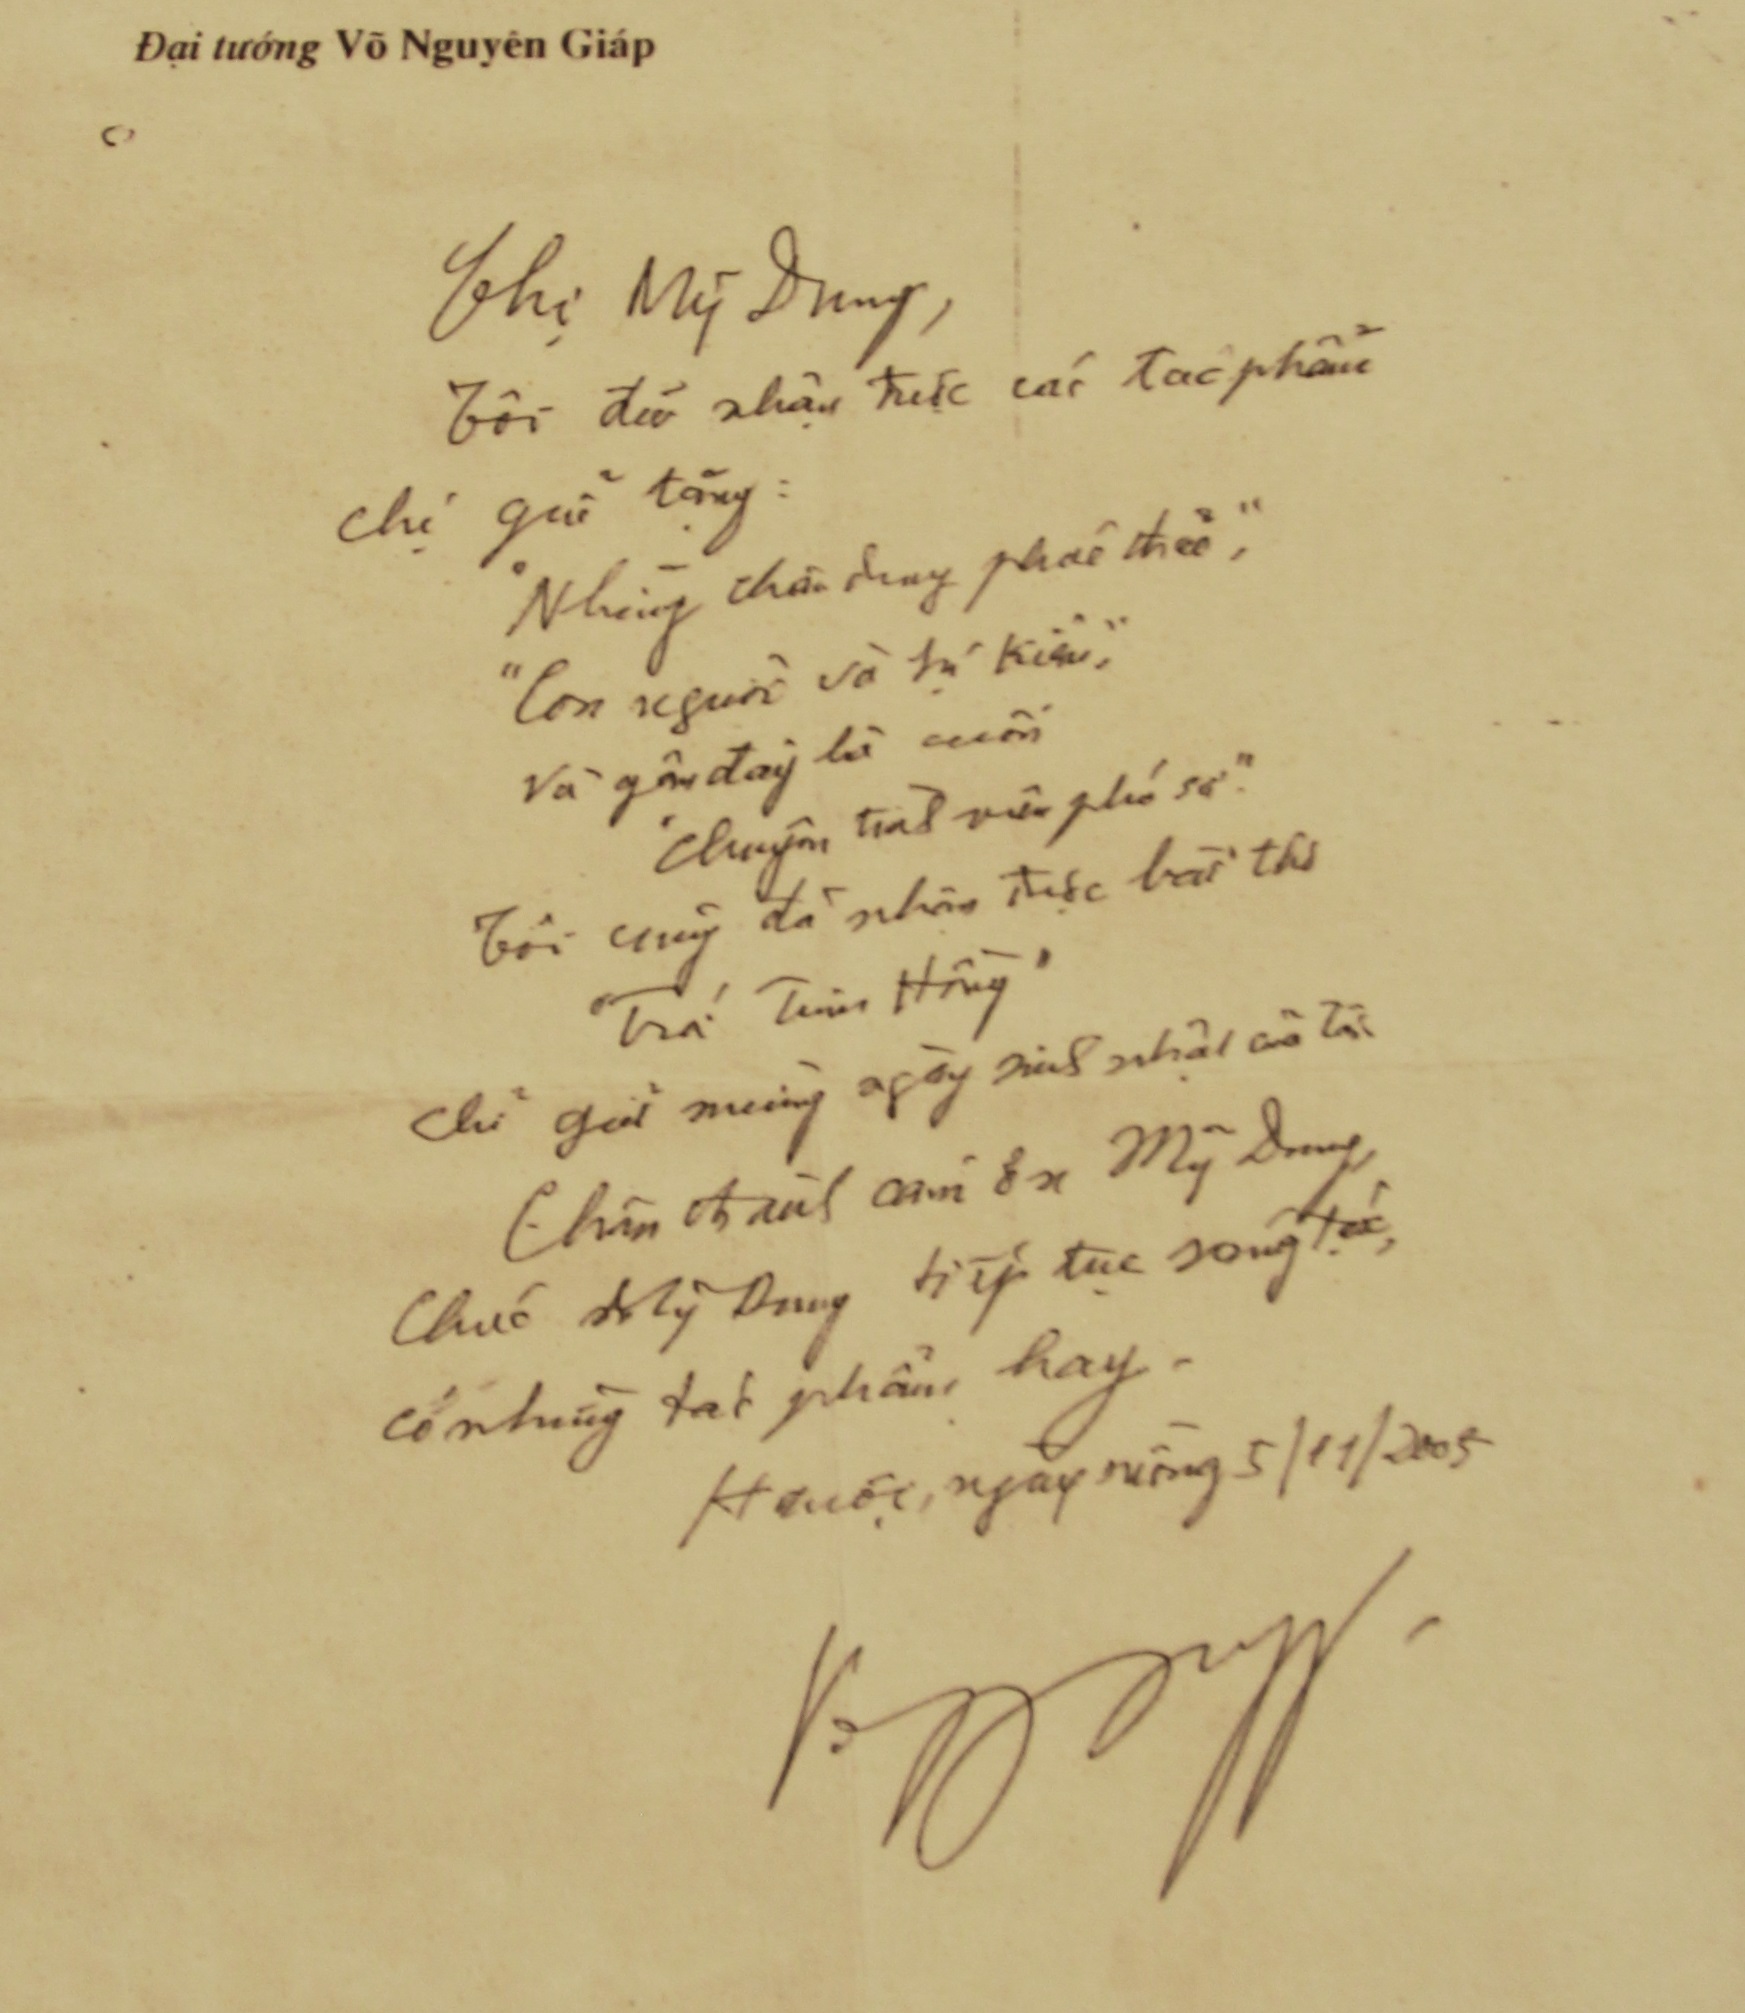 Đại tướng Võ Nguyên Giáp
Chị Mỹ Dung,
Tôi đã nhận được các tác phẩm
chị gửi tặng:
"Những chân dung phác thảo",
"Con người và sự kiện",
và gần đây là cuốn
"Chuyện tình viên phó sứ".
Tôi cũng đã nhận được bài thơ
"Trái Tim Hồng"
chị gửi mừng ngày sinh nhật của tôi
Chân thành cám ơn Mỹ Dung,
Chúc Mỹ Dung tiếp tục sáng tác,
có những tác phẩm hay.
Hà nội, ngày mồng 5/11/2005